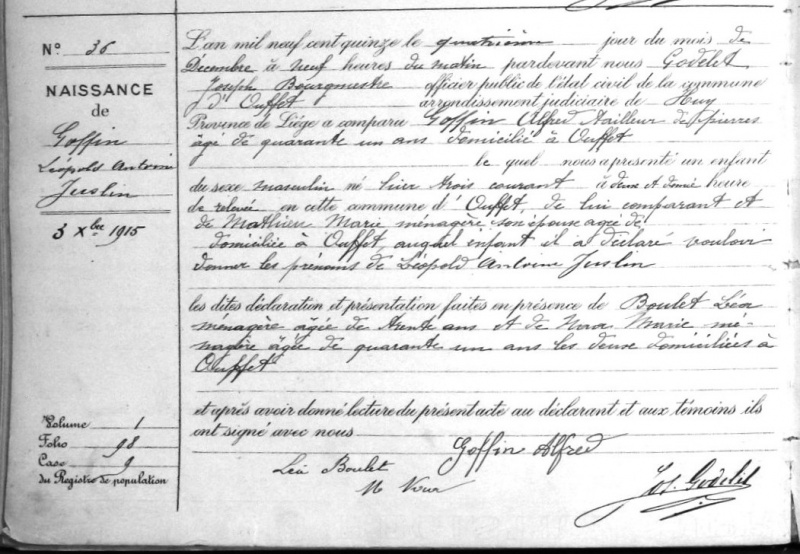 N° 36
NAISSANCE
de
Goffin
Léopold Antoine
Juslin
3 Xbre 1915
Volume 1
Folio 98
Case 9
du Registre de population
L'an mil neuf cent quinze le quatrième jour du mois de
Decembre à neuf heures du matin pardevant nous Godelet
Joseph Bourgmestre officier public de l'état civil de la commune
d'Ouffet arrondissement judiciaire de Huy
Province de Liége a comparu Goffin Alfred tailleur de pierres
âgé de quarante un ans domicilié à Ouffet
le quel nous a présenté un enfant
du sexe masculin né hier trois courant à deux et demie heure
de relevée en cette commune d'Ouffet, de lui comparant et
de Mathieu Marie ménagère son épouse agée de
domiciliée à Ouffet, auquel enfant il a déclaré vouloir
donner les prénoms de Léopold Antoine Juslin
les dites déclaration et présentation faites en présence de Boulet Léa
ménagère agée de trente ans et de Marie mé-
nagère âgée de quarante un ans les deux domiciliées à
Ouffet
et après avoir donné lecture du présent acte au déclarant et aux témoins ils
ont signé avec nous
Goffin Alfred
Léa Boulet
M
Jos. Godelet